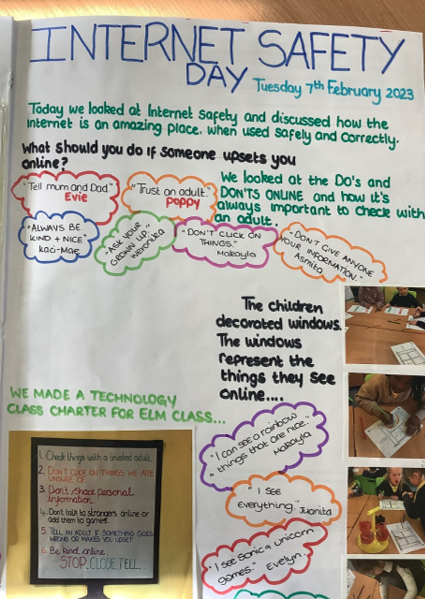 INTERNET SAFETY
DAY Tuesday 7th February 2023
Today we looked at Internet safety and discussed how the
internet is an amazing place. when used safely and correctly.
What should you do if someone upsets you
online?
"Tell mum and Dad."
Evie
"Trust an adult."
Poppy
We looked at the Do's and
DON'TS ONLINE and how it's
always important to check with
an adult.
"ALWAYS BE
KIND + NICE"
Kaci-Mae
"ASK YOUR
GROWN UP."
Veronika
"DON'T CLICK ON
THINGS."
Makayla
"DON'T GIVE ANYONE
YOUR INFORMATION."
Asmita
The children
decorated windows.
The windows
represent the
things they see
online....
WE MADE A TECHNOLOGY
CLASS CHARTER FOR ELM CLASS...
1. Check things with a trusted adult.
2. DON'T CLICK ON THINGS WE ARE
UNSURE OF.
3. Don't share personal
information.
4. Don't talk to strangers online or
add them to games.
5. TELL AN ADULT IF SOMETHING GOES
WRONG OR MAKES YOU UPSET.
6. Be kind online.
STOP, CLOSE, TELL.
"I can see a rainbow
things that are nice."
Makayla
"I SEE
Everything." Juanita
"I see Sonic a unicorn
games." Evelyn.